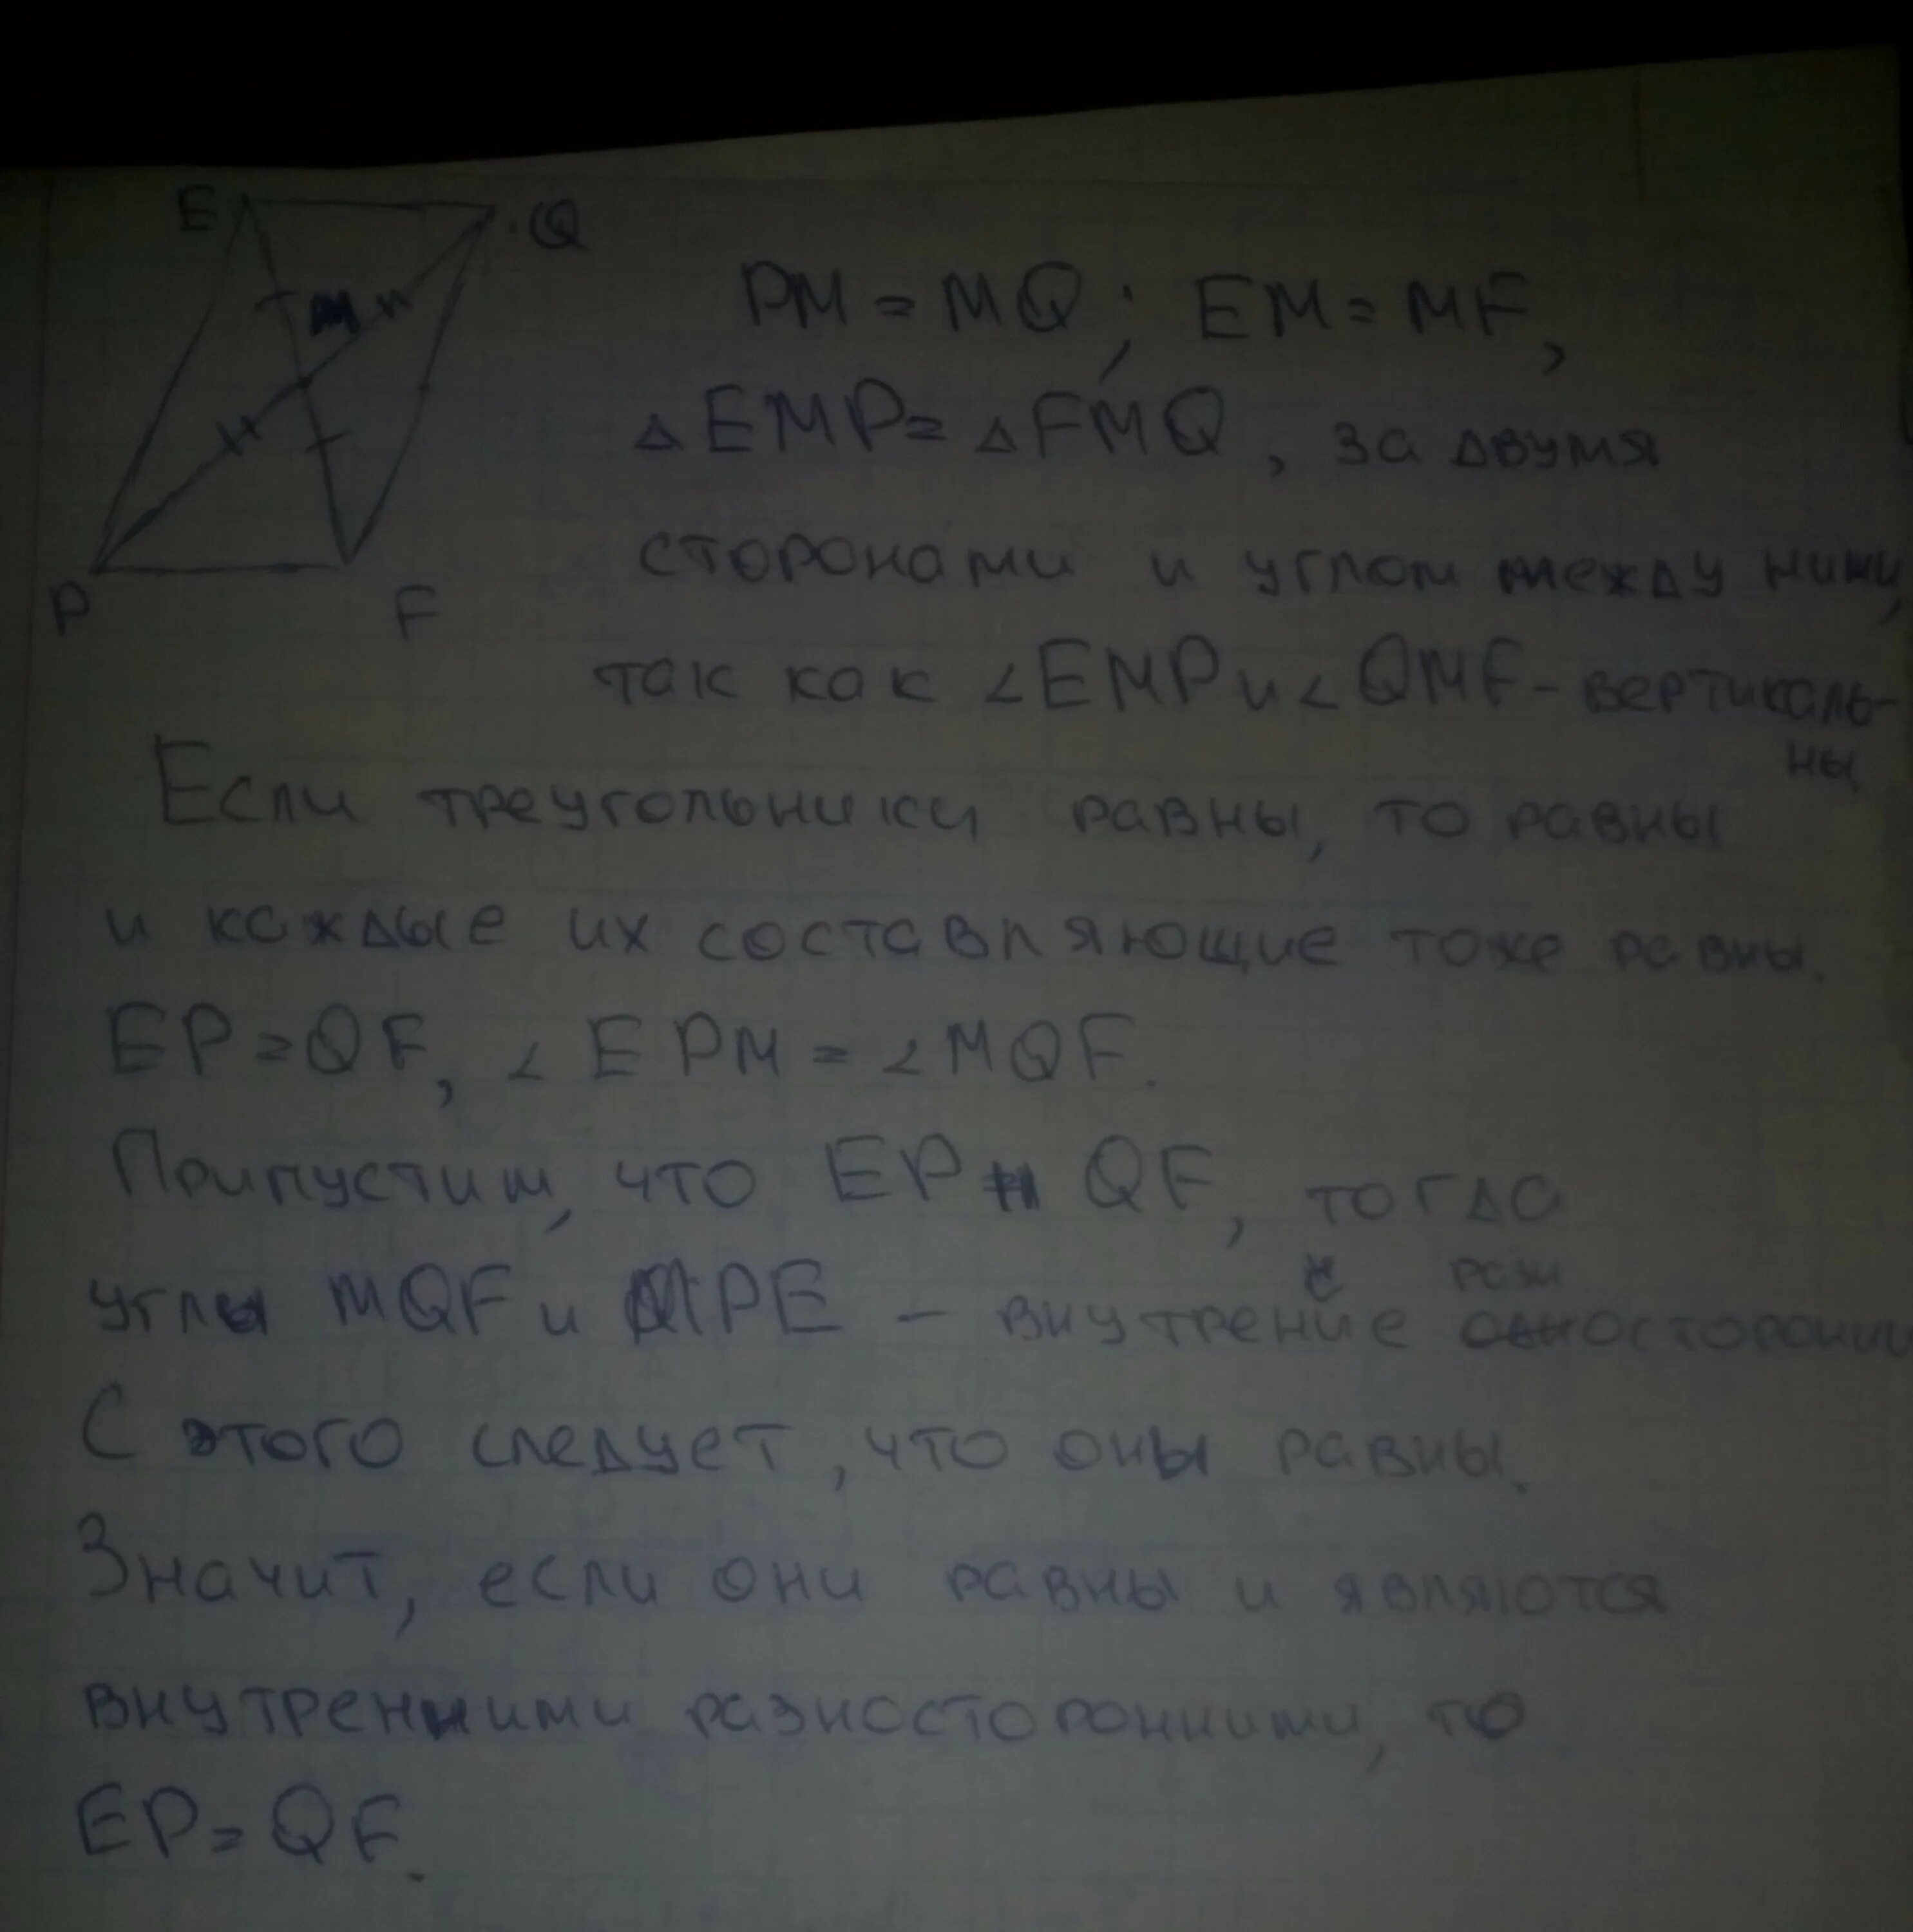 E Q
M
P F
PM = MQ; EM = MF,
△EMP = △FMQ, за двумя
сторонами и углом между ними,
так как ∠EMP и ∠QMF - вертикаль-
ны
Если треугольники равны, то равны
и каждые их составляющие тоже равны.
EP = QF, ∠EPM = ∠MQF.
Припустим, что EP || QF, тогда
углы MQF и MPE – внутрение разносторонни
С этого следует, что оны равны.
Значит, если они равны и являются
внутренними разносторонними, то
EP = QF.